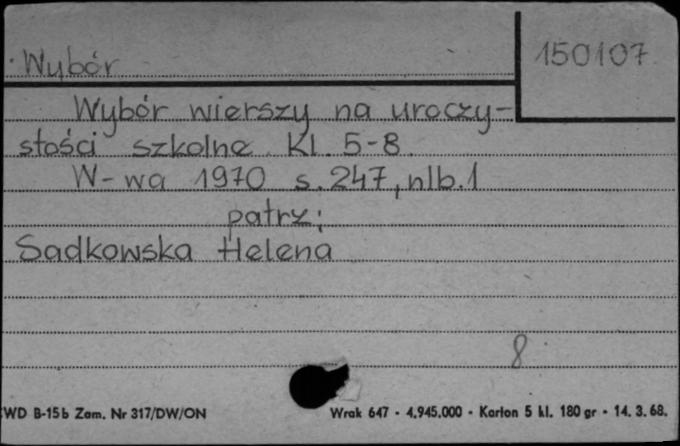 Wybór
150107
Wybór wierszy na uroczy-
stości szkolne. Kl. 5-8.
W-wa 1970 s. 247, nlb. 1
patrz:
Sadkowska Helena
8
WD B-15b Zam. Nr 317/DW/ON
Wrak 647 - 4.945.000 - Karton 5 kl. 180 gr - 14. 3. 68.